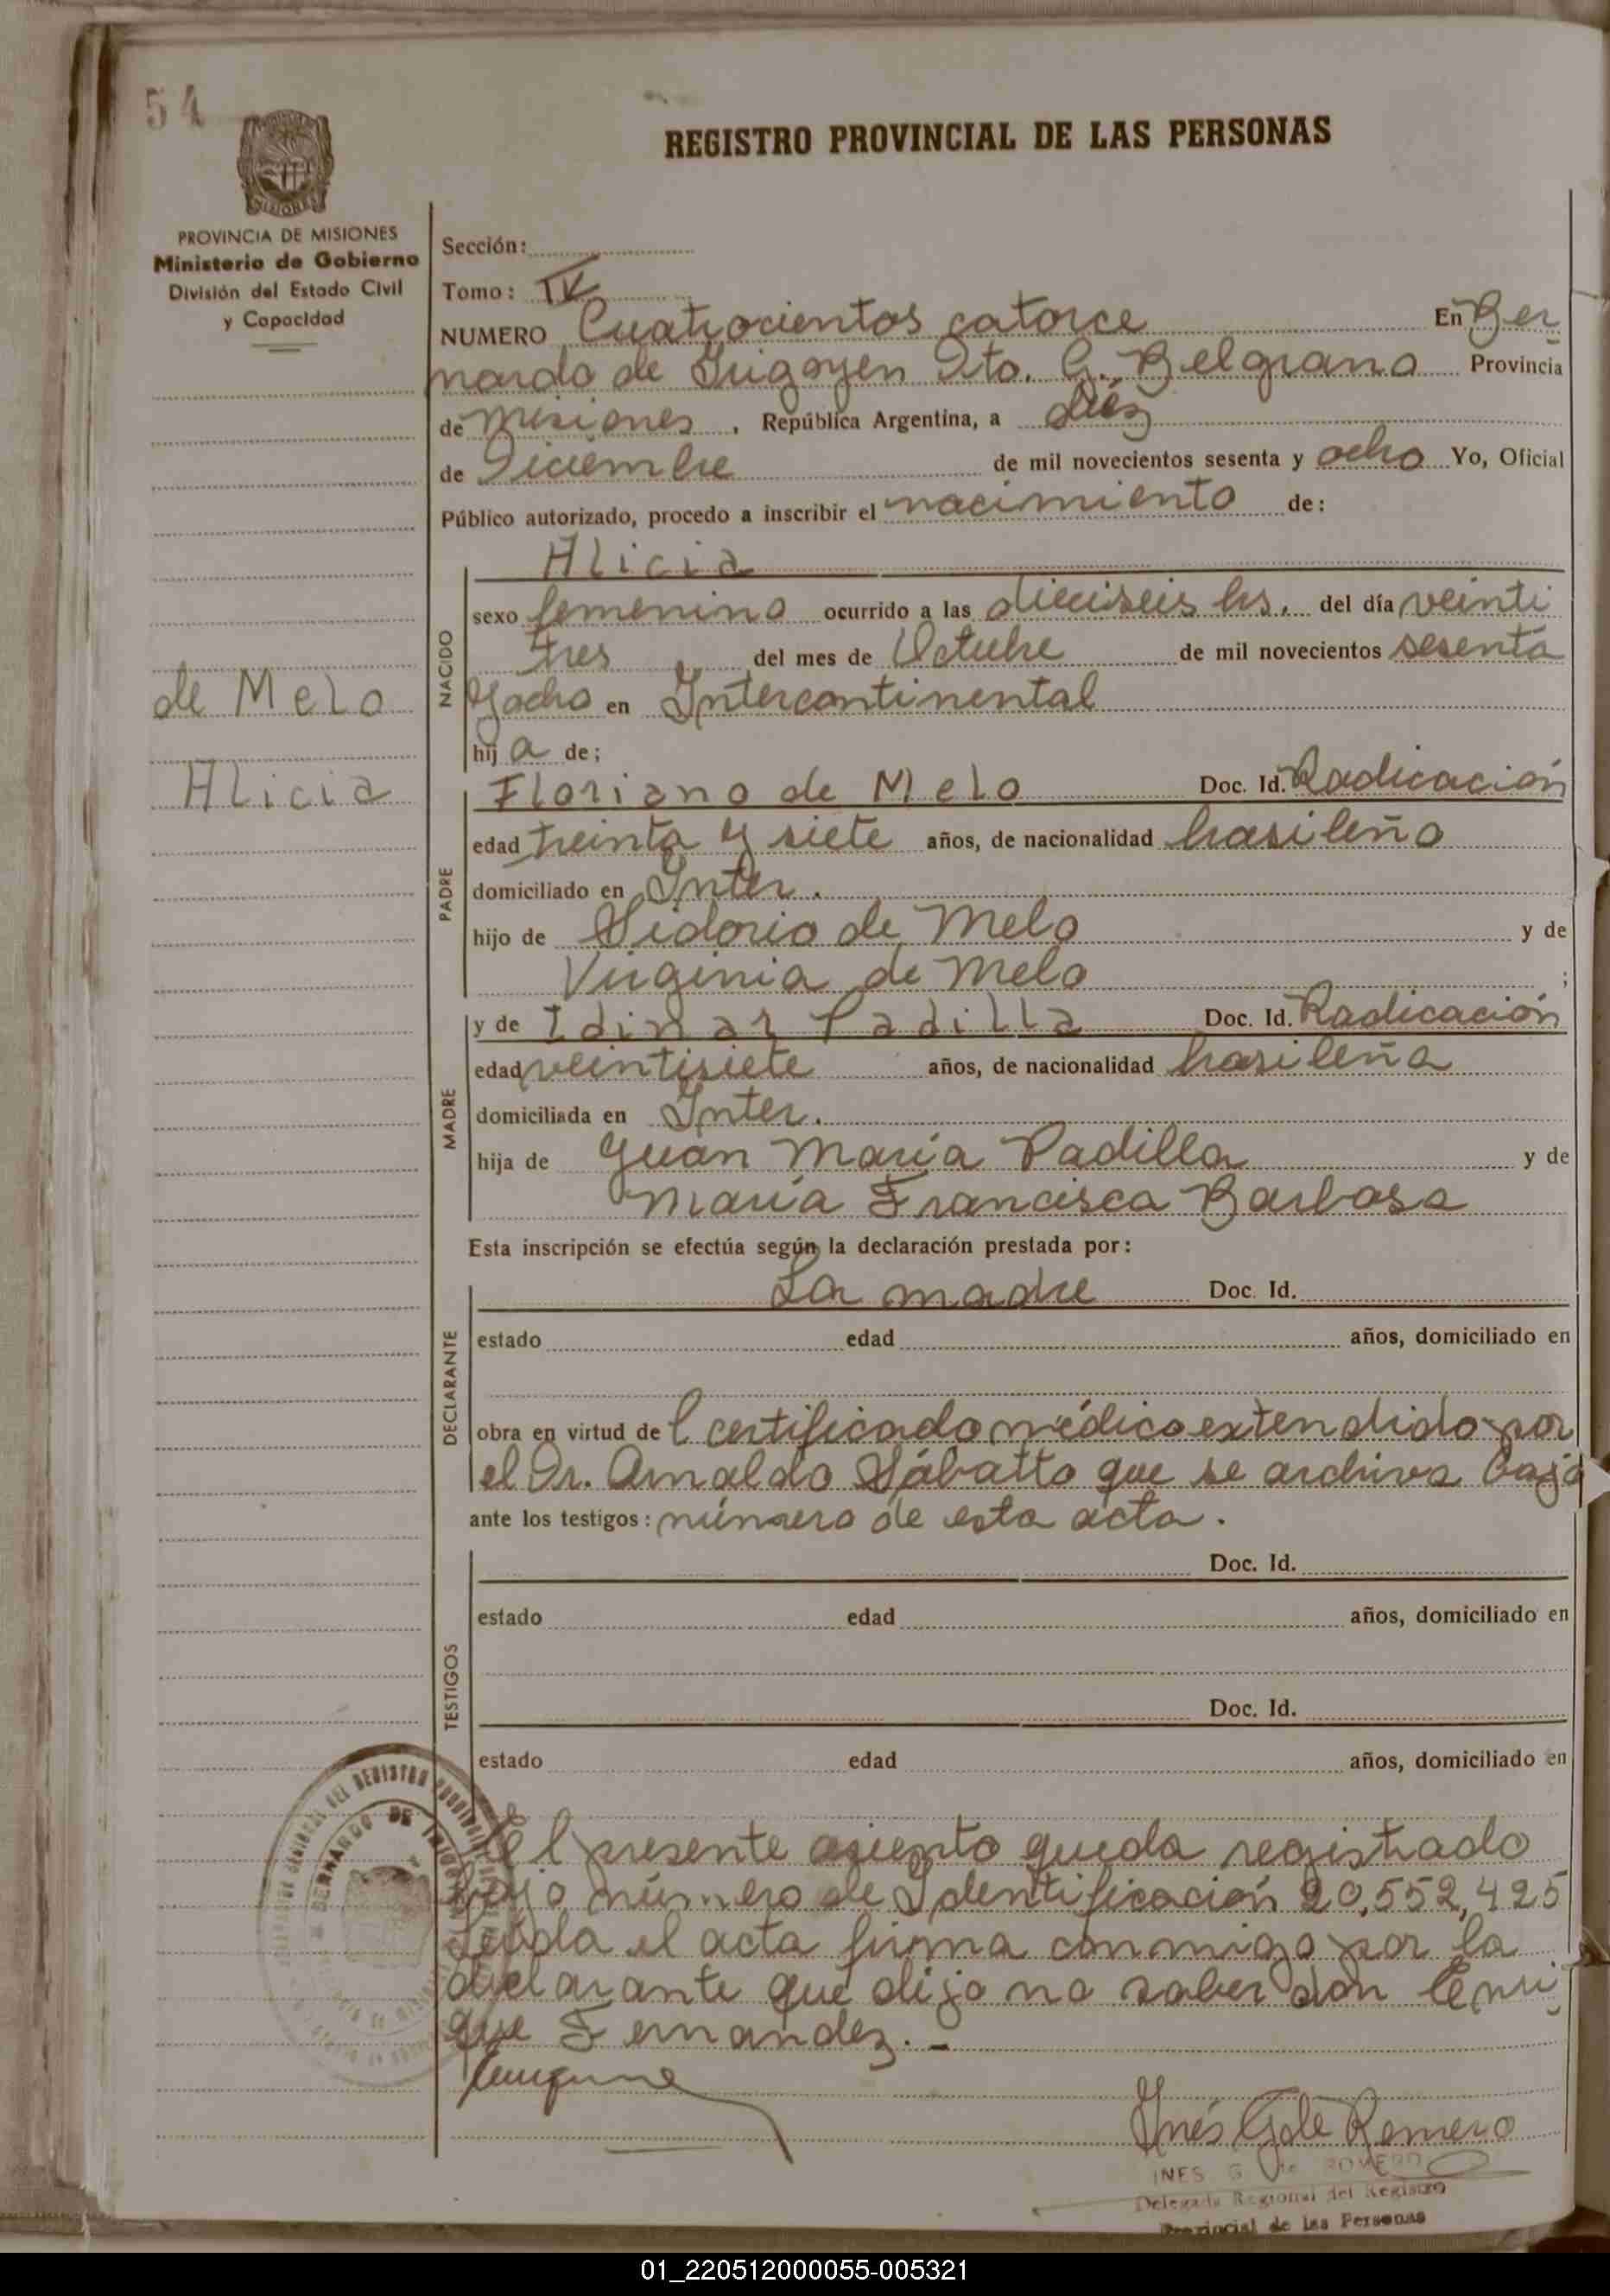 54
REGISTRO PROVINCIAL DE LAS PERSONAS
MISIONES
PROVINCIA DE MISIONES
Ministerio de Gobierno
División del Estado Civil
y Capacidad
Sección:
Tomo: IV
NUMERO Cuatrocientos catorce En Ber
nardo de Irigoyen Dto. G. Belgrano Provincia
de Misiones, República Argentina, a diéz
de Diciembre de mil novecientos sesenta y ocho Yo, Oficial
Público autorizado, procedo a inscribir el nacimiento de:
Alicia
NACIDO
sexo femenino ocurrido a las dieciseis hs. del día veinti
tres del mes de Octubre de mil novecientos sesenta
y ocho en Intercontinental
hija de;
de Melo
Alicia
PADRE
Floriano de Melo Doc. Id. Radicación
edad treinta y siete años, de nacionalidad brasileño
domiciliado en Inter.
hijo de Sidorio de Melo y de
Virginia de Melo ;
MADRE
y de Idinar Padilla Doc. Id. Radicación
edad veintisiete años, de nacionalidad brasileña
domiciliada en Inter.
hija de Juan María Padilla y de
María Francisca Barbosa
Esta inscripción se efectúa según la declaración prestada por:
DECLARANTE
La madre Doc. Id.
estado edad años, domiciliado en
obra en virtud del certificado médico extendido por
el Dr. Arnaldo Sábatto que se archiva bajo
ante los testigos: número de esta acta.
TESTIGOS
Doc. Id.
estado edad años, domiciliado en
Doc. Id.
estado edad años, domiciliado en
El presente asiento queda registrado
bajo número de Identificación 20,552,425
Leída el acta firma conmigo por la
declarante que dijo no saber don Enri
que Fernandez.-
DEL REGISTRO PROVINCIAL
BERNARDO DE IRIGOYEN
Inés G de Romero
INES G. de ROMERO
Delegada Regional del Registro
Provincial de las Personas
01_220512000055-005321